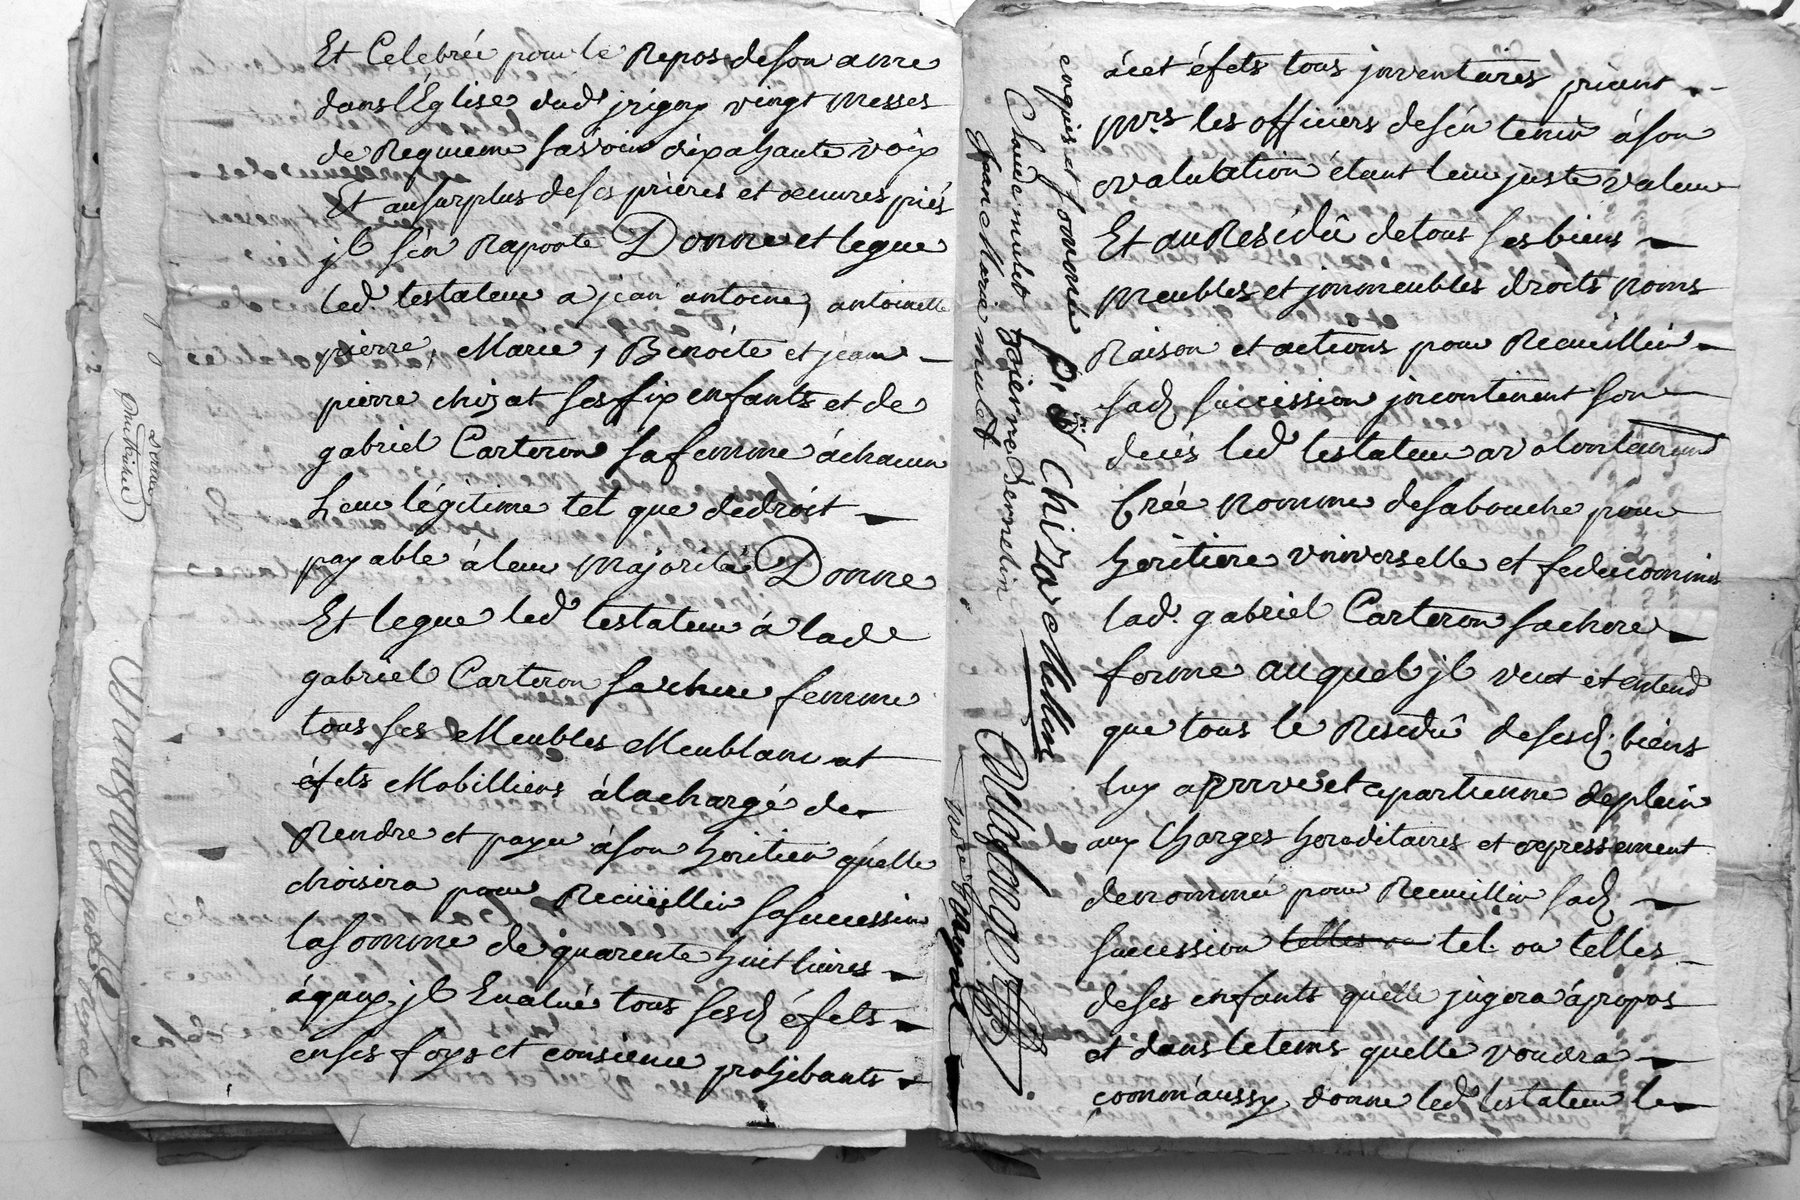 Et Celebrée pour le Repos de son ame
dans l'Eglise dud. jrigny vingt Messes
de Requieme savoir dix a haute voix
Et au surplus de ses prieres et oeuvres piés
jl s'én Raporte Donne et legue
led. testateur a jean antoine, antoinette
pierre, Marie, Benoite et jean
pierre chizat ses six enfants et de
gabriel Carteron sa femme á chacun
Leur légitime tel que de droit
payable á leur Majorité Donne
Et legue led. testateur á lade
gabriel Carteron sa chere femme
tous ses Meubles Meublans et
éfets Mobilliers á la charge de
Rendre et payer á son heritier quélle
choisira pour Recüeillir sa succession
la somme de quarente huit livres
á quoy jl Evalué tous sesd. éfets
en ses foys et consience prohibants
á cet éfets tous jnventaires priant
Mrs les officiers de s'én tenir á son
evalutation étant leur juste valeur
Et au Residû de tous ses biens
Meubles et jmmeubles droits Noms
Raison et actions pour Recueillir
sad. succession jncontinent son
decés led. testateur a volontairement
Créé Nomme de sa bouche pour
heritiere universelle et fedeicommis
lad. gabriel Carteron sa chere
femme auquel jl veut et entend
que tous le Residû de sesd. biens
luy aprrve et apartienne de plein
aux Charges hereditaires et expressement
denommée pour Recueillir sad.
succession telles ou tel ou telles
de ses enfants quélle jugera á propos
et dans le tems quelle voudra
comm'aussy donne led. testateur le
enquis et sommée
P. Chizat
Claude mulet
pierre Dernelin
jean Marie mulet